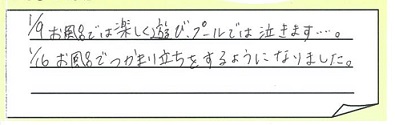 1/9 お風呂では楽しく遊び、プールでは泣きます…。
1/16 お風呂でつかまり立ちをするようになりました。